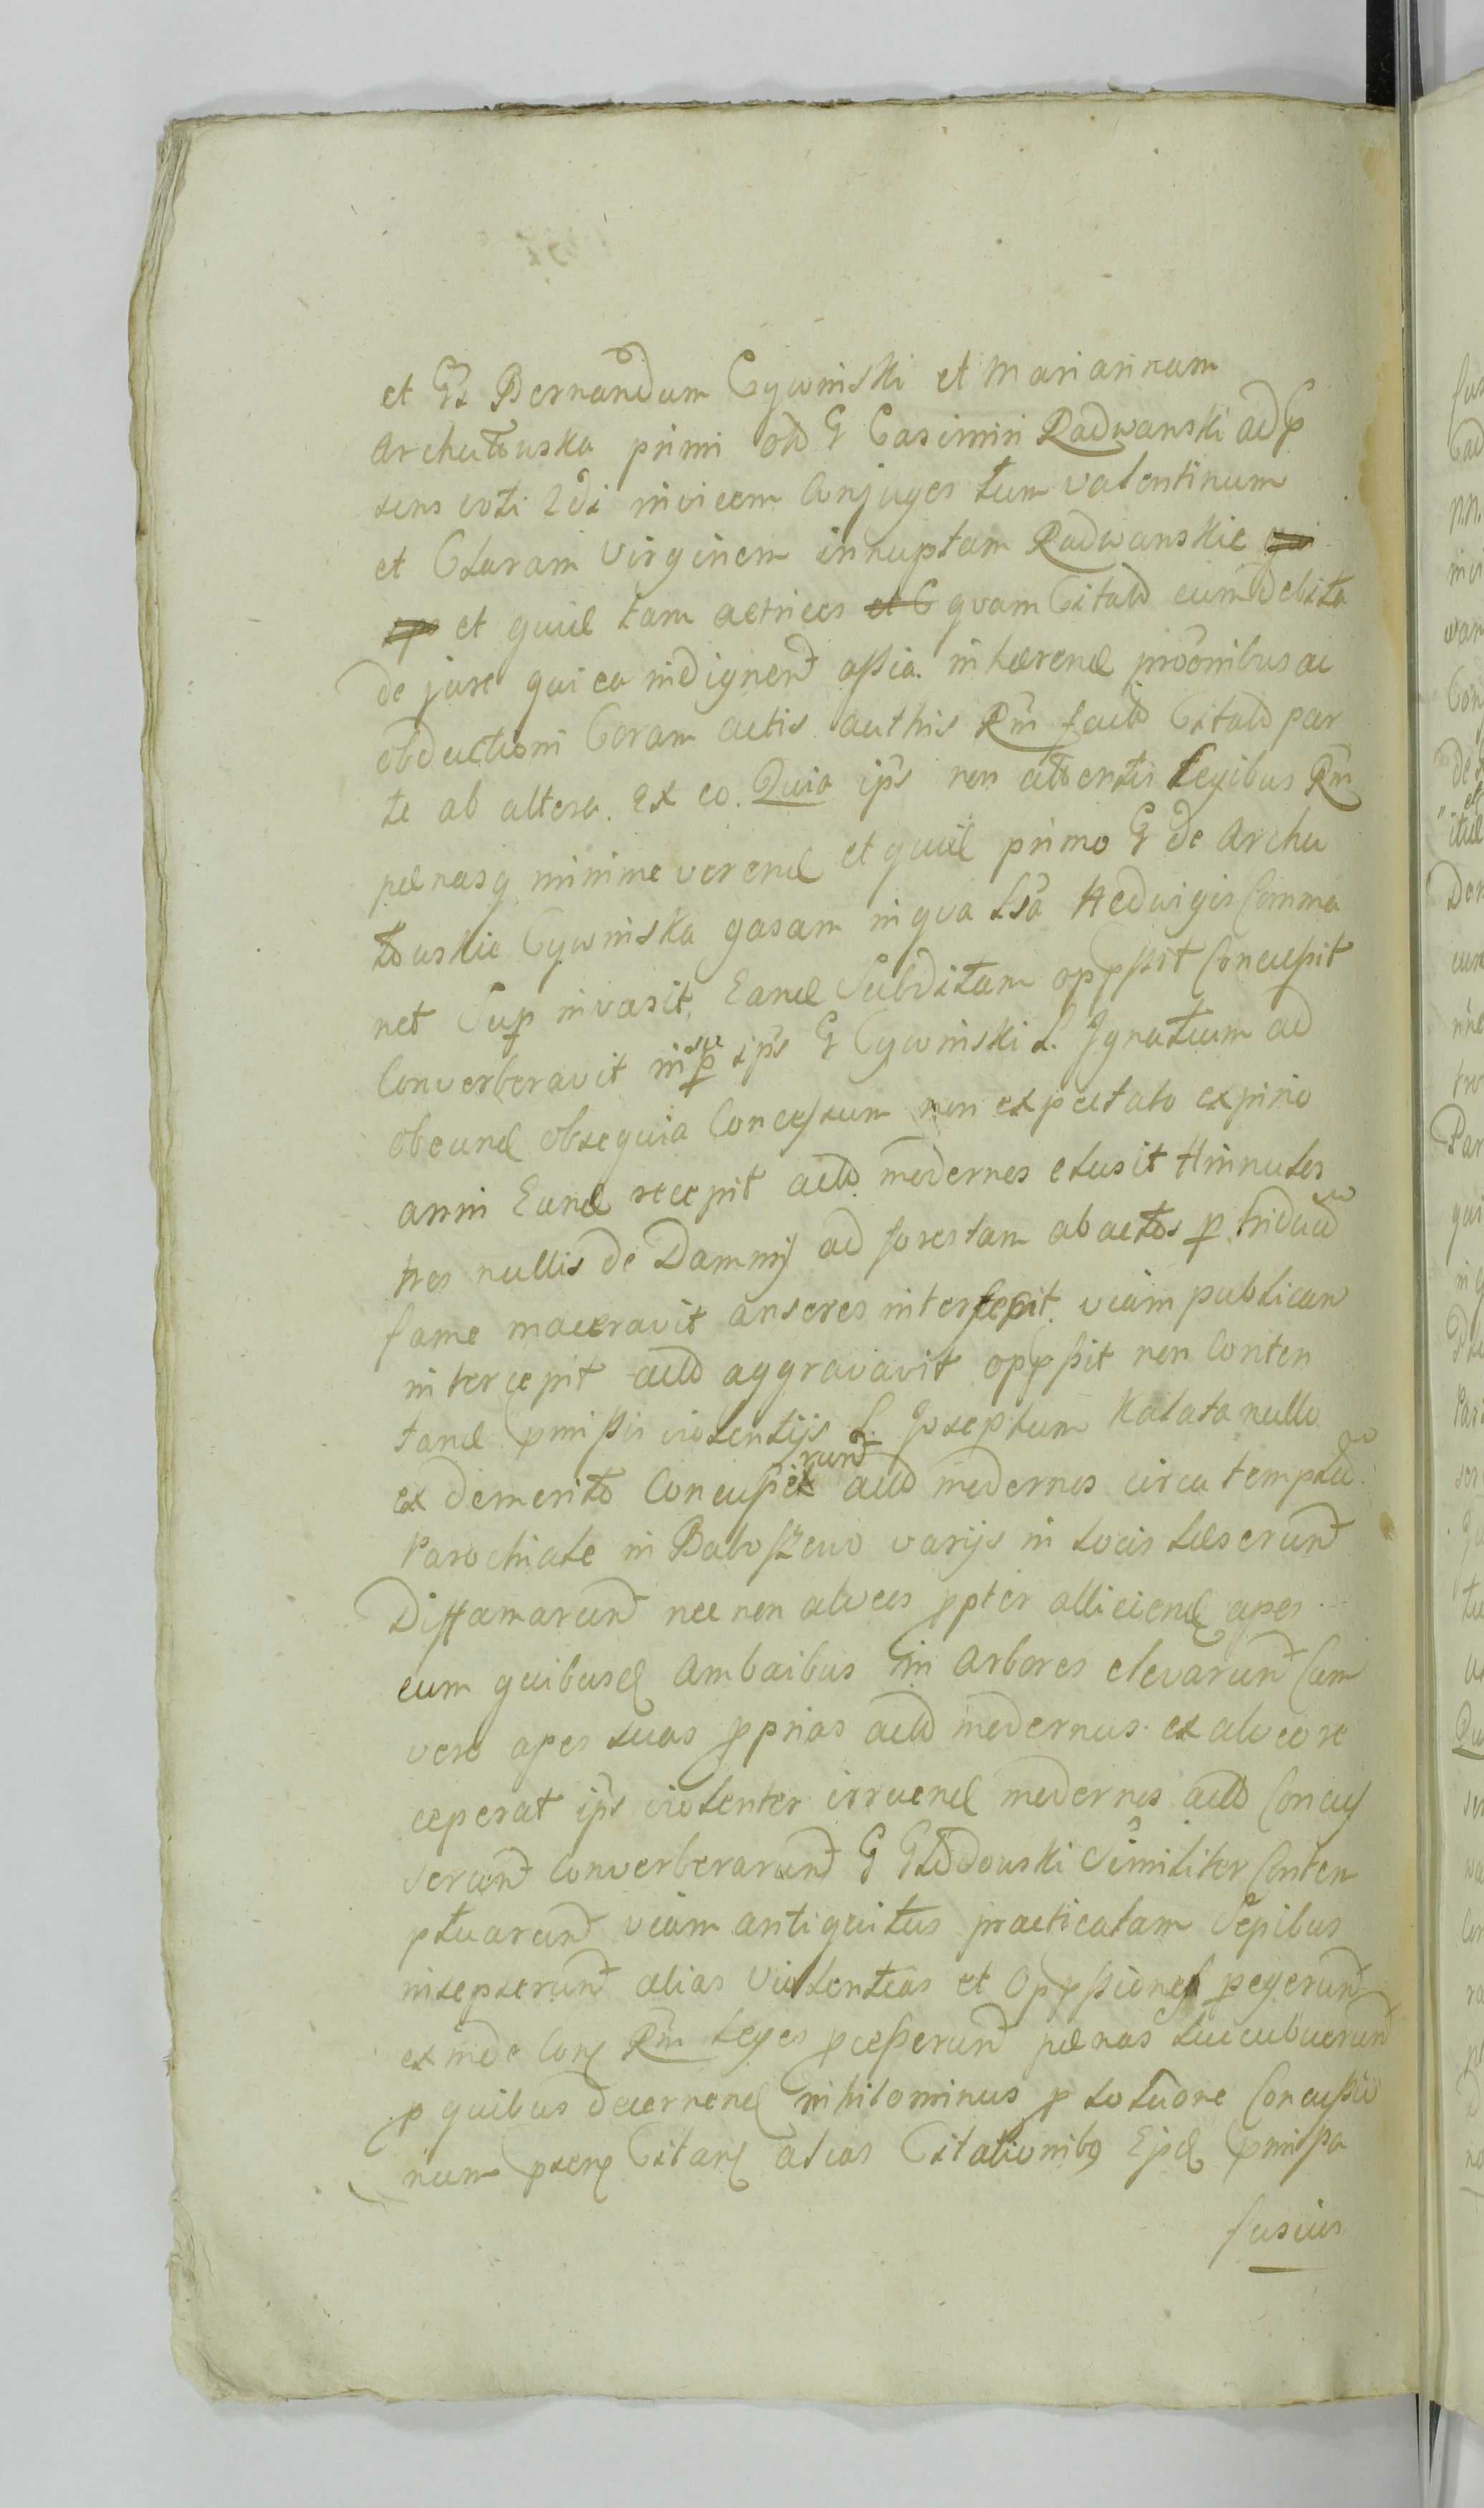 et Gs Bernardum Cywinski et Mariannam
Archutowska primi olim G Casimiri Radwanski ad p
sens voti 2di invicem Conjuges tum valentinum
et Claram virginem innuptam Radwanskie
et quid tam actrices et C quam Citatos cum debita
de jure qui ea indignent assia inhaerend proonibus ac
obductioni Coram actis authis Rni factis Citatos par
te ab altera. Ex eo. Quia ips non attentis Legibus Rni
paenasq minime verend et quid primo G de Archu
towskie Cywinska gasam in qua Lsa Hedwigis Comma
net Sup invasit, Eand Subditam oppssit Concussit
Converberavit insup ips G Cywinski L. Ignatium ad
obeund obsequia Concessum non expectato expirio
anni Eund recepit actos modernos elusit Hinnulos
tres nullis de Damnis ad forestam abactos p triduum
fame maceravit anseres intercepit viam publicam
intercepit actos aggravavit oppssit non Conten
tand pmissis violentijs L. Josephum Kalata nullo
ex demerito Concusserunt actos modernos circa templum
Parochiale in Baboszewo varijs in locis laeserunt
Diffamarunt nec non alveos ppter alliciend apes
cum quibusd Ambaibus in Arbores elevarunt Cum
vero apes suas pprias actos modernus ex alveo re
ceperat ips violenter irruend modernos actos Concus
serunt Converberarunt G Glodowski Similiter Contem
ptuarunt viam antiquitus practicatam Sepibus
insepserunt alias violentias et Oppssiones pegerunt
exinde Conq Rni Leges pcesserunt paenas succubuerunt
p quibus decernend nihilominus p solutione Concussio
num psens Citans alias Citationibq Ejsd pmissa
fusius